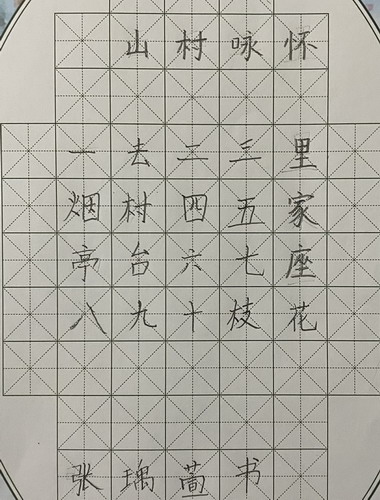 山村咏怀
一去二三里
烟村四五家
亭台六七座
八九十枝花
张瑀蔄书